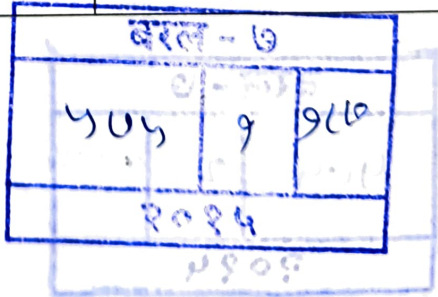 बरल - ७
५७५ १
२०२५